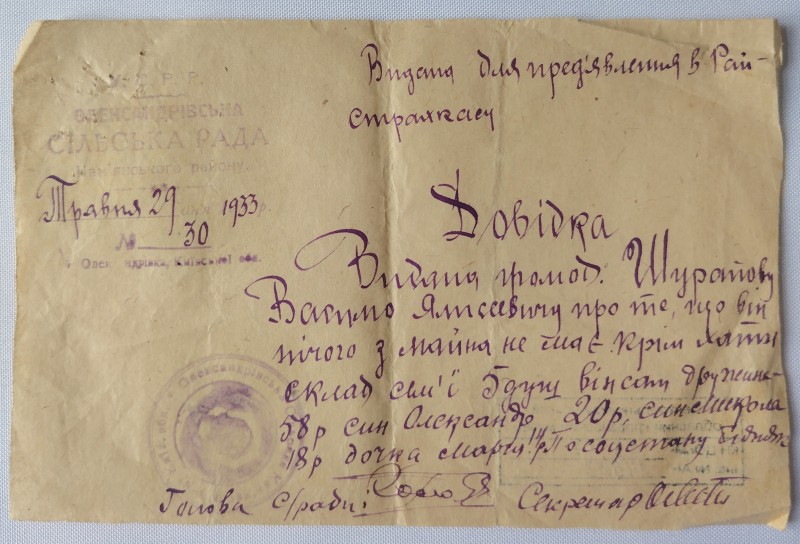 У.С.Р.Р.
ОЛЕКСАНДРІВСЬКА
СІЛЬСЬКА РАДА
Кам'янського району.
Травня 29 1933 р.
№ 30
с. Олександрівка, Київської обл.
Видана для пред'явлення в Рай-
страхкасу
Довідка
Видана громод. Шурапову
Василю Ялисеевичу про те, що він
нічого з майна не має крім хати
склад сем'ї 5 душ він сам дружина-
58р син Олександр 20р, син Микола
18р дочка Марія 14р По соцстану бідняк
Голова с/ради:
Секретар